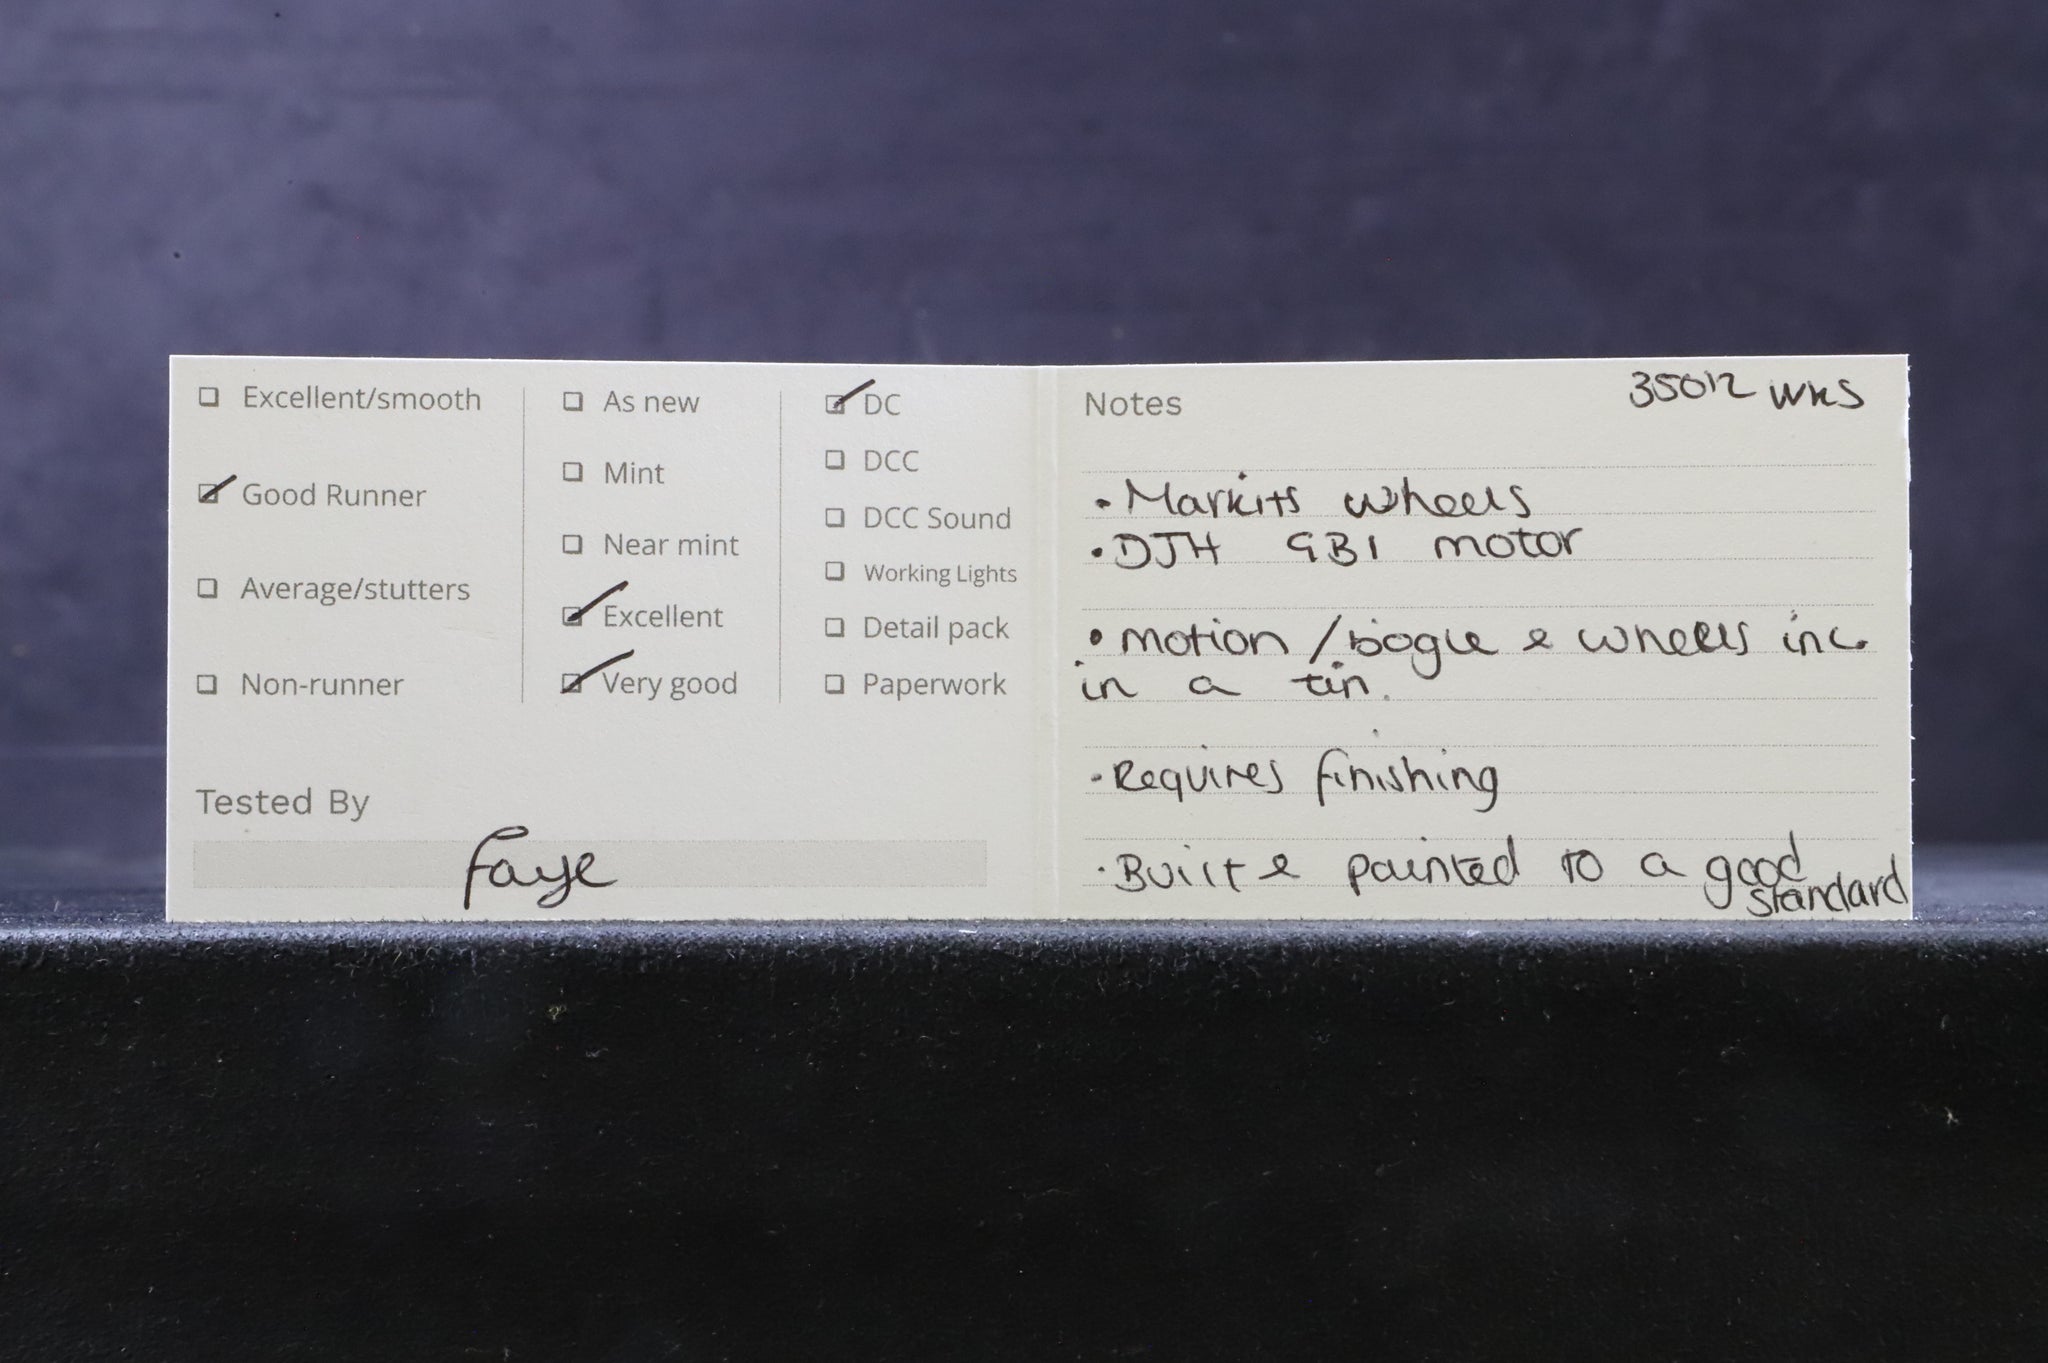 Excellent/smooth
Good Runner
Average/stutters
Non-runner
As new
Mint
Near mint
Excellent
Very good
DC
DCC
DCC Sound
Working Lights
Detail pack
Paperwork
Tested By
Faye
Notes
35012 WKS
• Markits wheels
• DJH GB1 motor
• motion / bogie & wheels inc.
in a tin.
• Requires finishing
• Built & painted to a good
standard